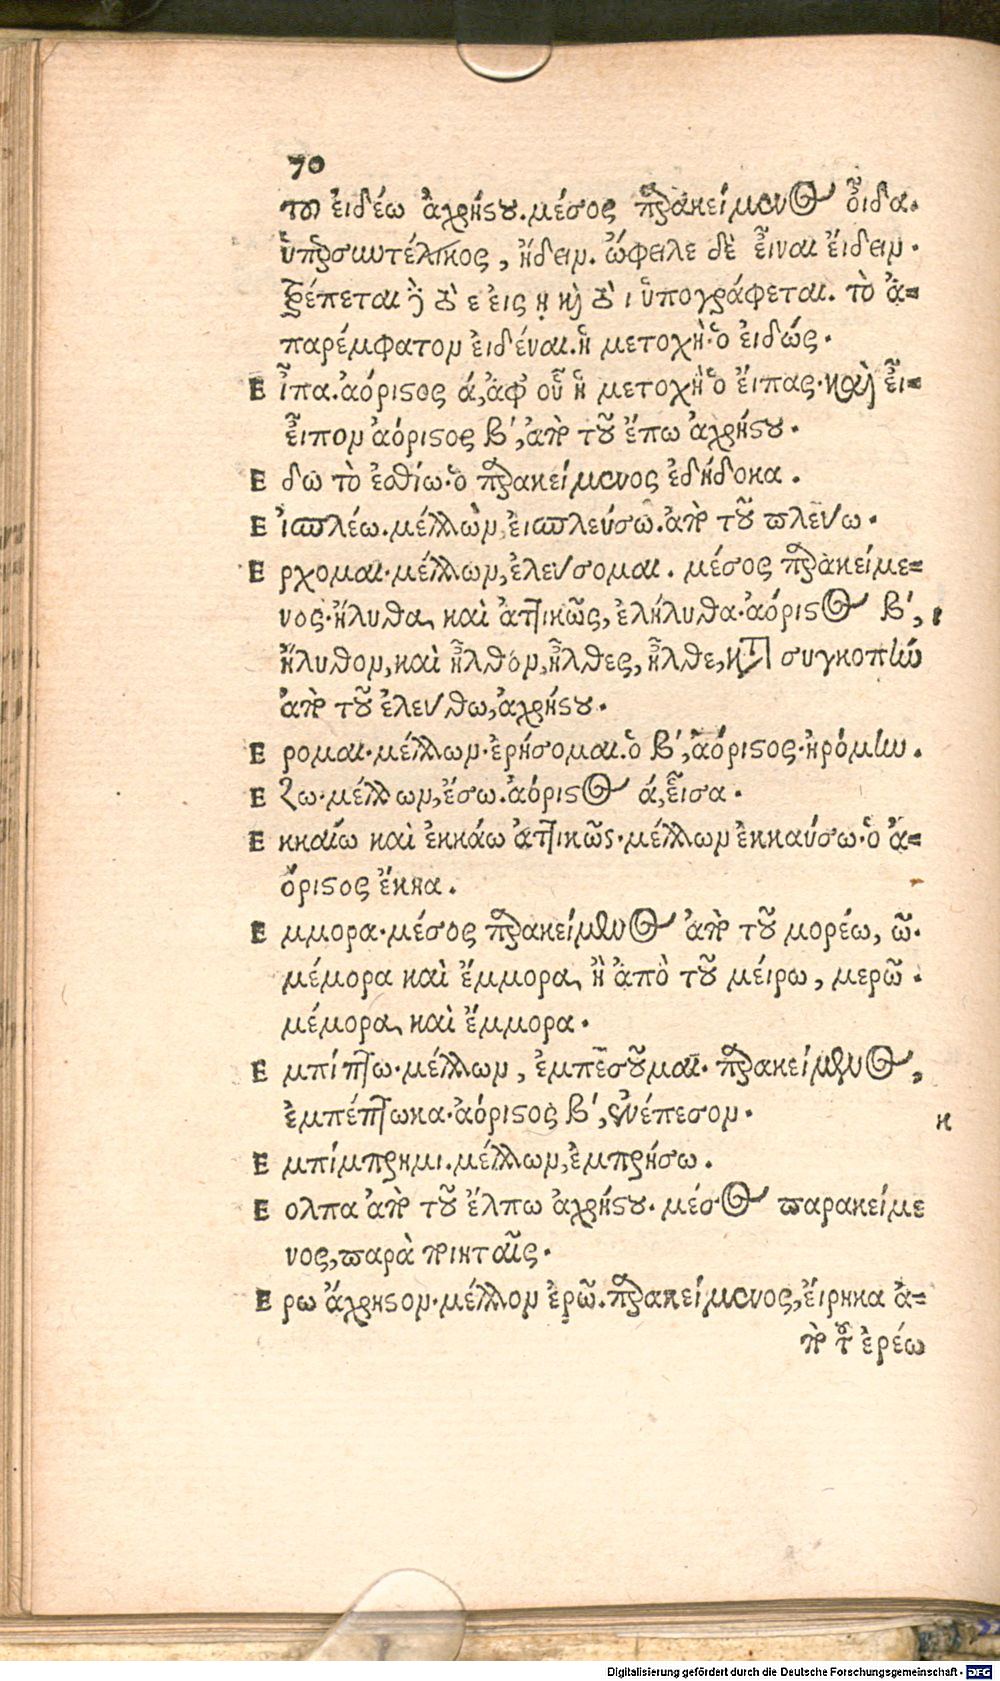 70
τοῦ εἰδέω ἀχρήστου. μέσος παρακείμενος οἶδα.
ὑπερσυντέλικος, ᾔδειν. ὤφειλε δὲ εἶναι εἴδειν.
τρέπεται ἢ τὸ ε εἰς η καὶ τὸ ι ὑπογράφεται. τὸ ἀ=
παρέμφατον εἰδέναι. ἡ μετοχὴ. ὁ εἰδώς.
Εἶπα. ἀόριστος ά, ἀφ' οὗ ἡ μετοχὴ ὁ εἴπας. καὶ εἶ=
εἶπον ἀόριστος β', ἀπὸ τοῦ ἔπω ἀχρήστου.
Εδω τὸ ἐσθίω. ὁ παρακείμενος ἐδήδοκα.
Εἰσπλέω. μέλλων, εἰσπλεύσω. ἀπὸ τοῦ πλεύω.
Ερχομαι. μέλλων, ἐλεύσομαι. μέσος παρακείμε=
νος. ἤλυθα, καὶ ἀττικῶς, ἐλήλυθα. ἀόριστος β',
ἤλυθον, καὶ ἦλθον, ἦλθες, ἦλθε, κατὰ συγκοπὴν
ἀπὸ τοῦ ἐλεύθω, ἀχρήστου.
Ερομαι. μέλλων. ἐρήσομαι. ὁ β', ἀόριστος. ἠρόμην.
Εζω. μέλλων, ἔσω. ἀόριστος ά, εἷσα.
Εκκαίω καὶ ἐκκάω ἀττικῶς. μέλλων ἐκκαύσω. ὁ ἀ=
όριστος ἔκκα.
Εμμορα. μέσος παρακείμενος ἀπὸ τοῦ μορέω, ῶ.
μέμορα καὶ ἔμμορα, ἢ ἀπὸ τοῦ μείρω, μερῶ.
μέμορα, καὶ ἔμμορα.
Εμπίπτω. μέλλων, ἐμπεσοῦμαι. παρακείμενος,
ἐμπέπτωκα. ἀόριστος β', ἐνέπεσον.
Εμπίμπρημι. μέλλων, ἐμπρήσω.
Εολπα ἀπὸ τοῦ ἔλπω ἀχρήστου. μέσος παρακείμε
νος, παρὰ ποιηταῖς.
Ερω ἄχρηστον. μέλλον ἐρῶ. παρακείμενος, εἴρηκα ἀ=
πὸ τοῦ ἐρέω
Digitalisierung gefördert durch die Deutsche Forschungsgemeinschaft - DFG